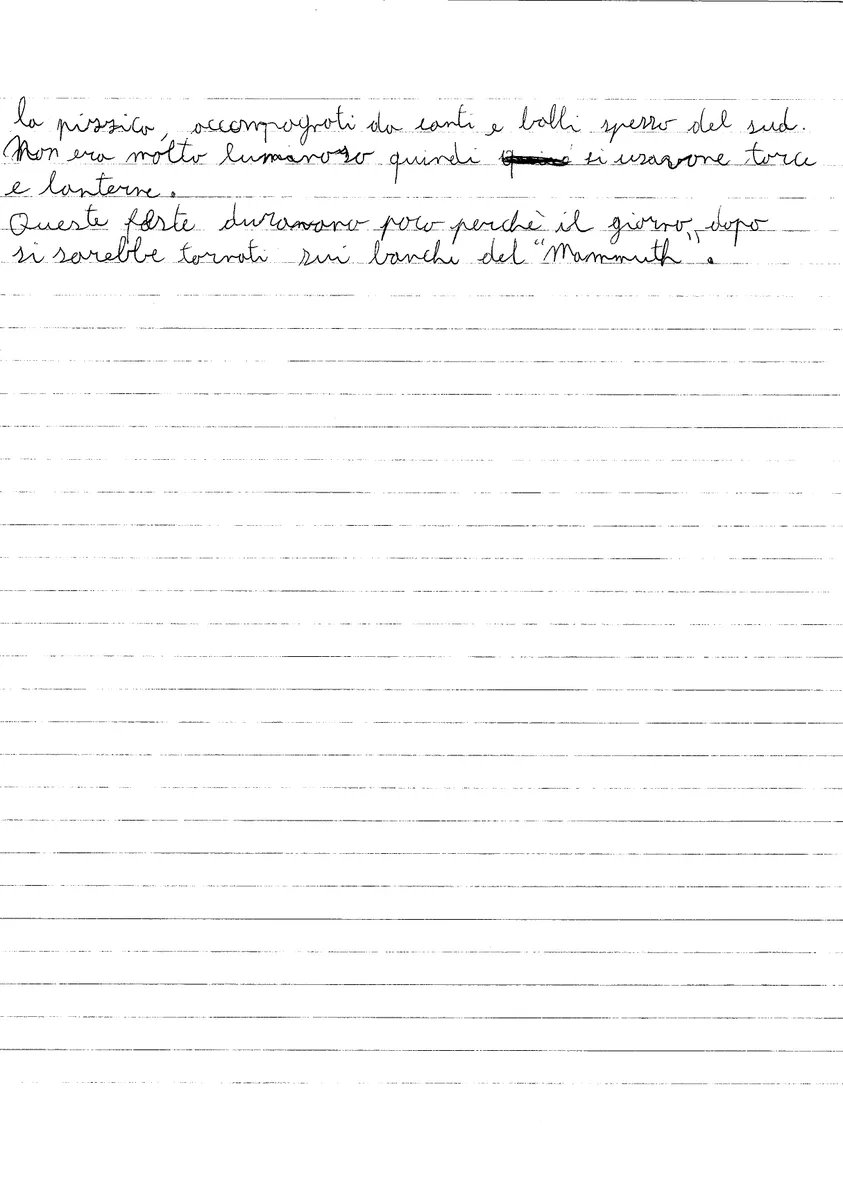 la pizzica, accompagnati da canti e balli spesso del sud.
Non era molto luminoso quindi si usavone torce
e lanterne.
Queste feste duravano poco perchè il giorno dopo
si sarebbe tornati sui banchi del "Mammuth".